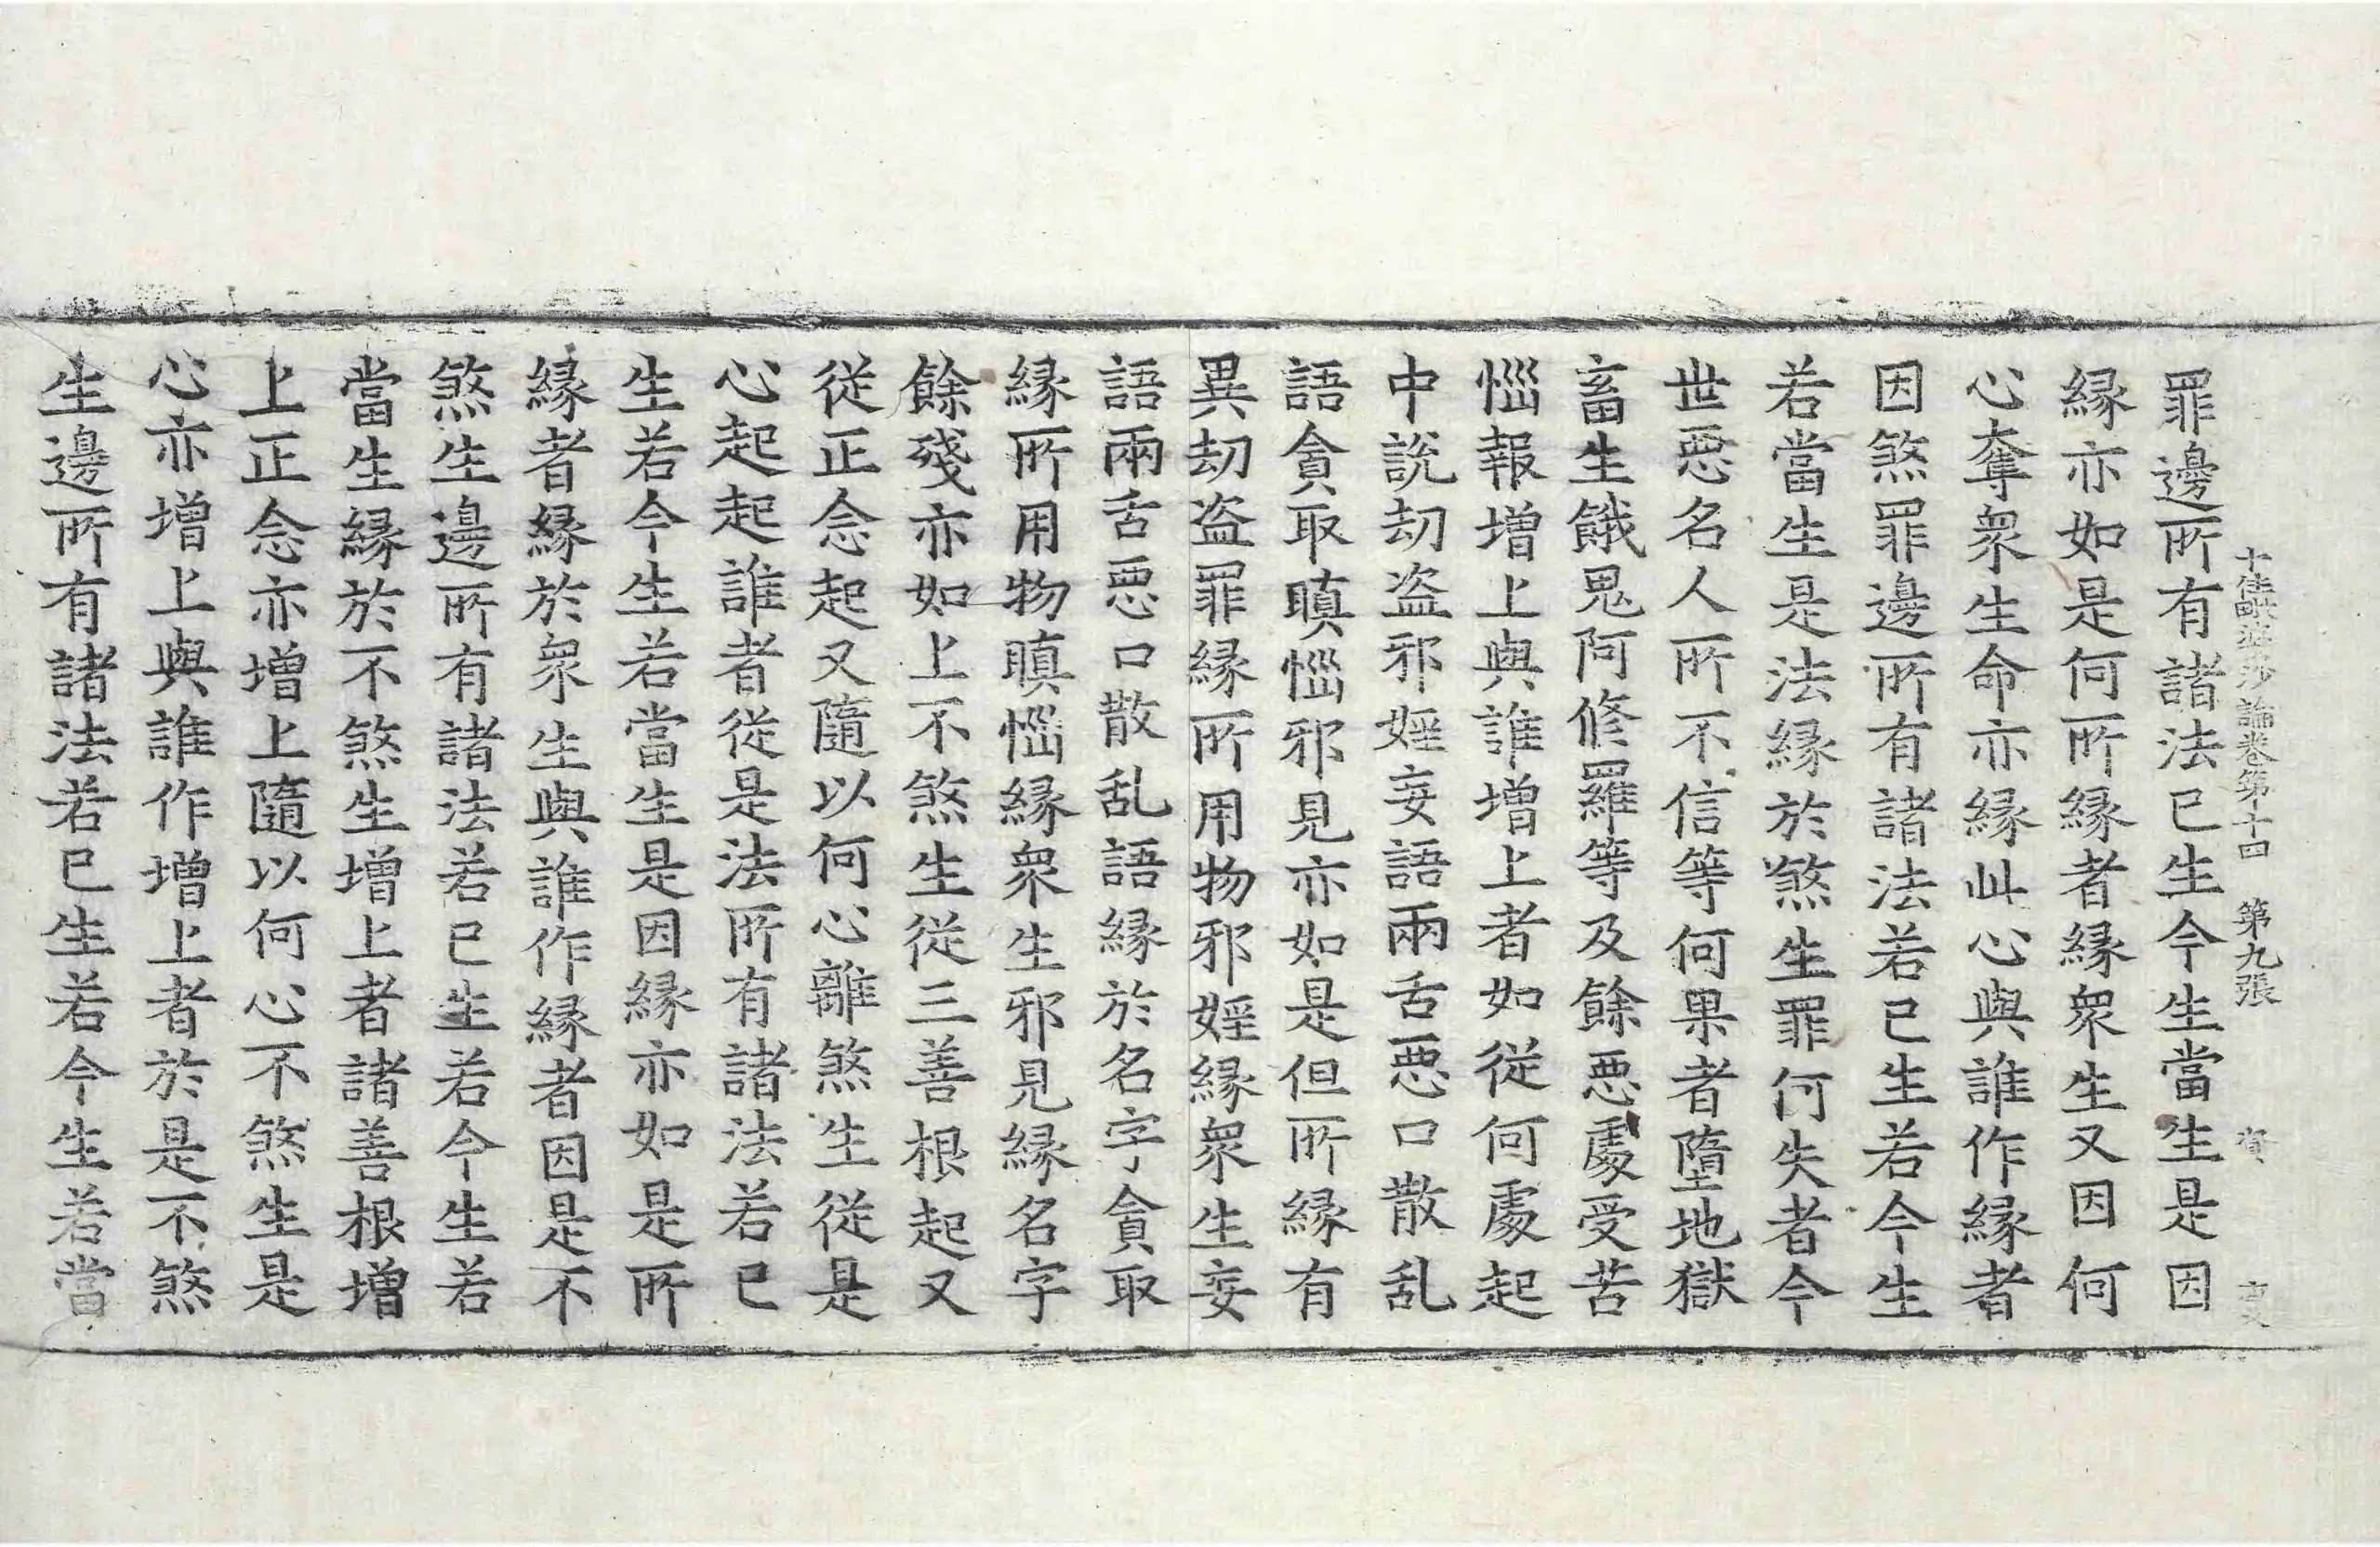 十住毗婆沙論卷第十四　第九張　資
罪邊所有諸法已生今生當生是因
縁亦如是何所縁者縁衆生又因何
心奪衆生命亦縁此心與誰作縁者
因煞罪邊所有諸法若已生若今生
若當生是法縁於煞生罪何失者今
世惡名人所不信等何果者墮地獄
畜生餓鬼阿修羅等及餘惡處受苦
惱報増上與誰増上者如從何處起
中說刼盗邪婬妄語兩舌惡口散乱
語貪取瞋惱邪見亦如是但所縁有
異刼盗罪縁所用物邪婬縁衆生妄
語兩舌惡口散乱語縁於名字貪取
縁所用物瞋惱縁衆生邪見縁名字
餘殘亦如上不煞生從三善根起又
從正念起又隨以何心離煞生從是
心起起誰者從是法所有諸法若已
生若今生若當生是因縁亦如是所
縁者縁於衆生與誰作縁者因是不
煞生邊所有諸法若已生若今生若
當生縁於不煞生増上者諸善根増
上正念亦増上隨以何心不煞生是
心亦増上與誰作増上者於是不煞
生邊所有諸法若已生若今生若當